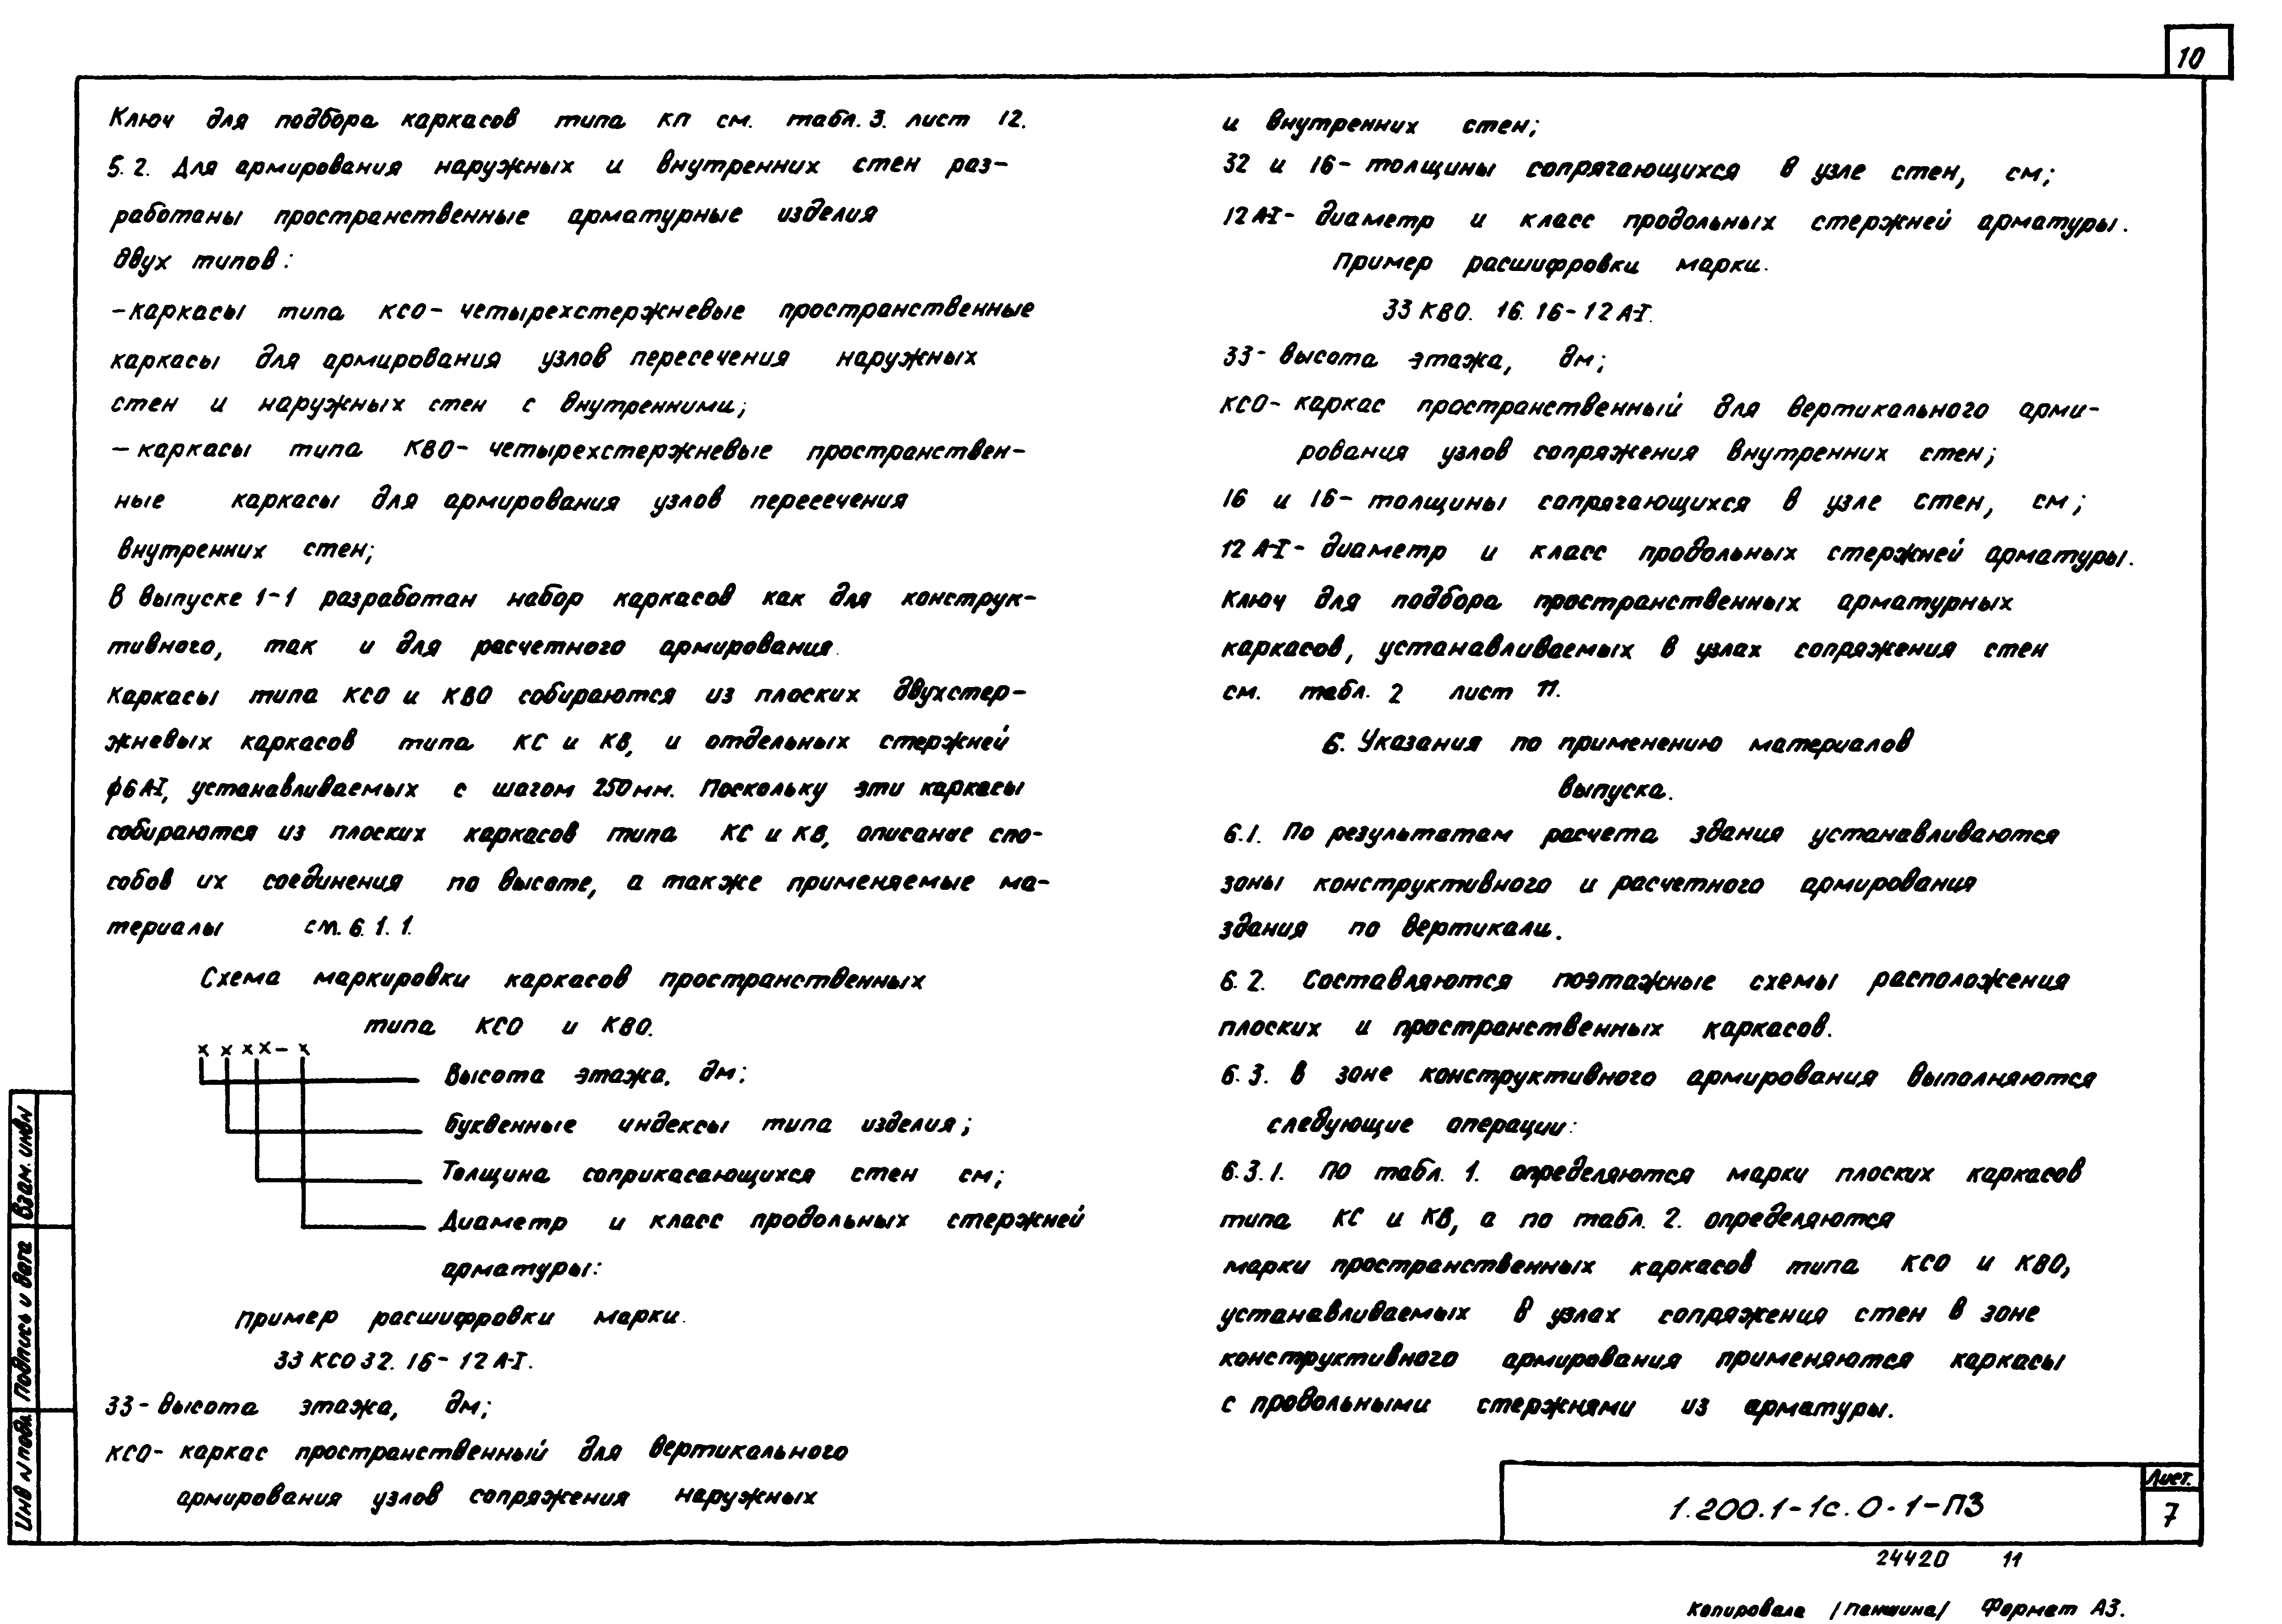 10
Ключ для подбора каркасов типа КП см. табл. 3. лист 12.
5.2. Для армирования наружных и внутренних стен раз-
работаны пространственные арматурные изделия
двух типов:
-каркасы типа КСО- четырехстержневые пространственные
каркасы для армирования узлов пересечения наружных
стен и наружных стен с внутренними;
- каркасы типа КВО- четырехстержневые пространствен-
ные каркасы для армирования узлов пересечения
внутренних стен;
В выпуске 1-1 разработан набор каркасов как для конструк-
тивного, так и для расчетного армирования.
Каркасы типа КСО и КВО собираются из плоских двухстер-
жневых каркасов типа КС и КВ, и отдельных стержней
ϕ6АI, устанавливаемых с шагом 250мм. Поскольку эти каркасы
собираются из плоских каркасов типа КС и КВ, описание спо-
собов их соединения по высоте, а также применяемые ма-
териалы см. 6.1.1.
Схема маркировки каркасов пространственных
типа КСО и КВО.
х х хх- х
Высота этажа, дм;
Буквенные индексы типа изделия;
Толщина соприкасающихся стен см;
Диаметр и класс продольных стержней
арматуры:
Пример расшифровки марки.
33 КСО 32. 16- 12 А-I.
33- высота этажа, дм;
КСО- каркас пространственный для вертикального
армирования узлов сопряжения наружных
и внутренних стен;
32 и 16- толщины сопрягающихся в узле стен, см;
12 А-I- диаметр и класс продольных стержней арматуры.
Пример расшифровки марки.
33 КВО. 16. 16- 12 А-I.
33- высота этажа, дм;
КСО- каркас пространственный для вертикального арми-
рования узлов сопряжения внутренних стен;
16 и 16- толщины сопрягающихся в узле стен, см;
12 А-I- диаметр и класс продольных стержней арматуры.
Ключ для подбора пространственных арматурных
каркасов, устанавливаемых в узлах сопряжения стен
см. табл. 2 лист 11.
6. Указания по применению материалов
выпуска.
6.1. По результатам расчета здания устанавливаются
зоны конструктивного и расчетного армирования
здания по вертикали.
6.2. Составляются поэтажные схемы расположения
плоских и пространственных каркасов.
6.3. В зоне конструктивного армирования выполняются
следующие операции:
6.3.1. По табл. 1. определяются марки плоских каркасов
типа КС и КВ, а по табл. 2. определяются
марки пространственных каркасов типа КСО и КВО,
устанавливаемых в узлах сопряжения стен в зоне
конструктивного армирования применяются каркасы
с продольными стержнями из арматуры.
Инв N подл. Подпись и дата Взам. инв N
1.200.1-1с.0-1-ПЗ
Лист.
7
24420 11
Копировала /Паншина/ Формат А3.